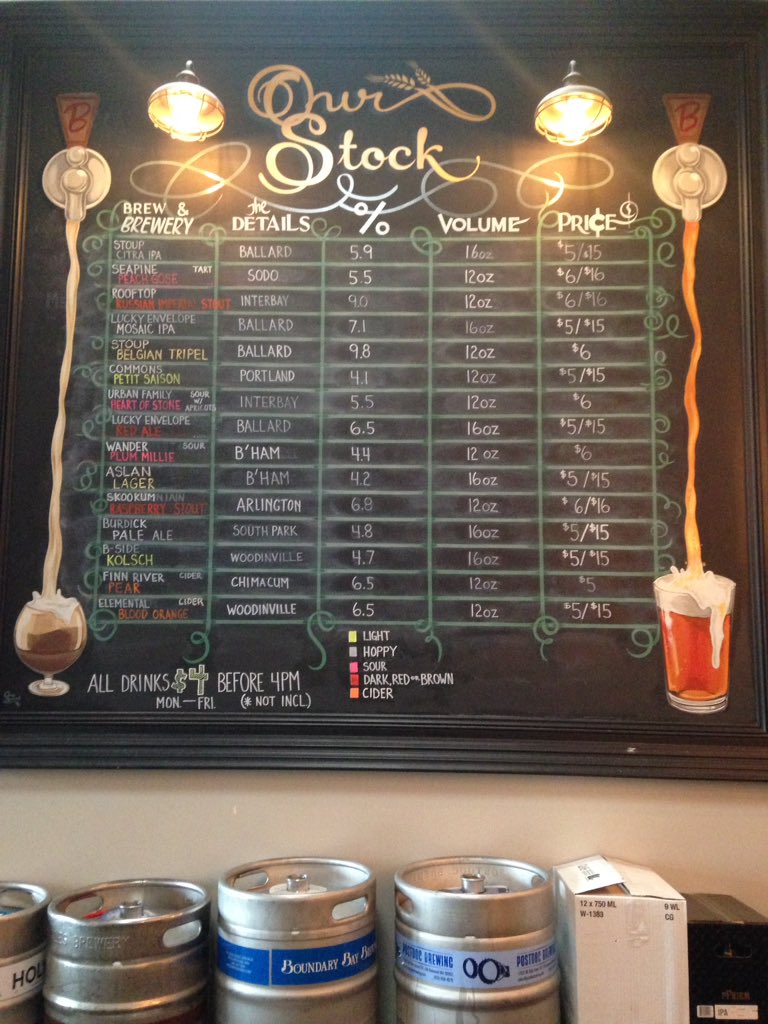 B
B
Our
Stock
BREW & BREWERY the DETAILS % VOLUME PRICE
STOUP CITRA IPA BALLARD 5.9 16oz $5/$15
SEAPINE TART PEACH GOSE SODO 5.5 12oz $6/$16
ROOFTOP RUSSIAN IMPERIAL STOUT INTERBAY 9.0 12oz $6/$16
LUCKY ENVELOPE MOSAIC IPA BALLARD 7.1 16oz $5/$15
STOUP BELGIAN TRIPEL BALLARD 9.8 12oz $6
COMMONS PETIT SAISON PORTLAND 4.1 12oz $5/$15
URBAN FAMILY SOUR W/ APRICOTS HEART OF STONE INTERBAY 5.5 12oz $6
LUCKY ENVELOPE RED ALE BALLARD 6.5 16oz $5/$15
WANDER SOUR PLUM MILLIE B'HAM 4.4 12oz $6
ASLAN LAGER B'HAM 4.2 16oz $5/$15
SKOOKUM RASPBERRY STOUT ARLINGTON 6.8 12oz $6/$16
BURDICK PALE ALE SOUTH PARK 4.8 16oz $5/$15
B-SIDE KOLSCH WOODINVILLE 4.7 16oz $5/$15
FINN RIVER CIDER PEAR CHIMACUM 6.5 12oz $5
ELEMENTAL CIDER BLOOD ORANGE WOODINVILLE 6.5 12oz $5/$15
LIGHT
HOPPY
SOUR
DARK, RED OR BROWN
CIDER
ALL DRINKS $4 BEFORE 4PM
MON.—FRI. (* NOT INCL.)
BREWERY
BOUNDARY BAY
POSTDOC BREWING
POSTDOC
12 x 750 ML 9 WL
W-1383 CG
IPA